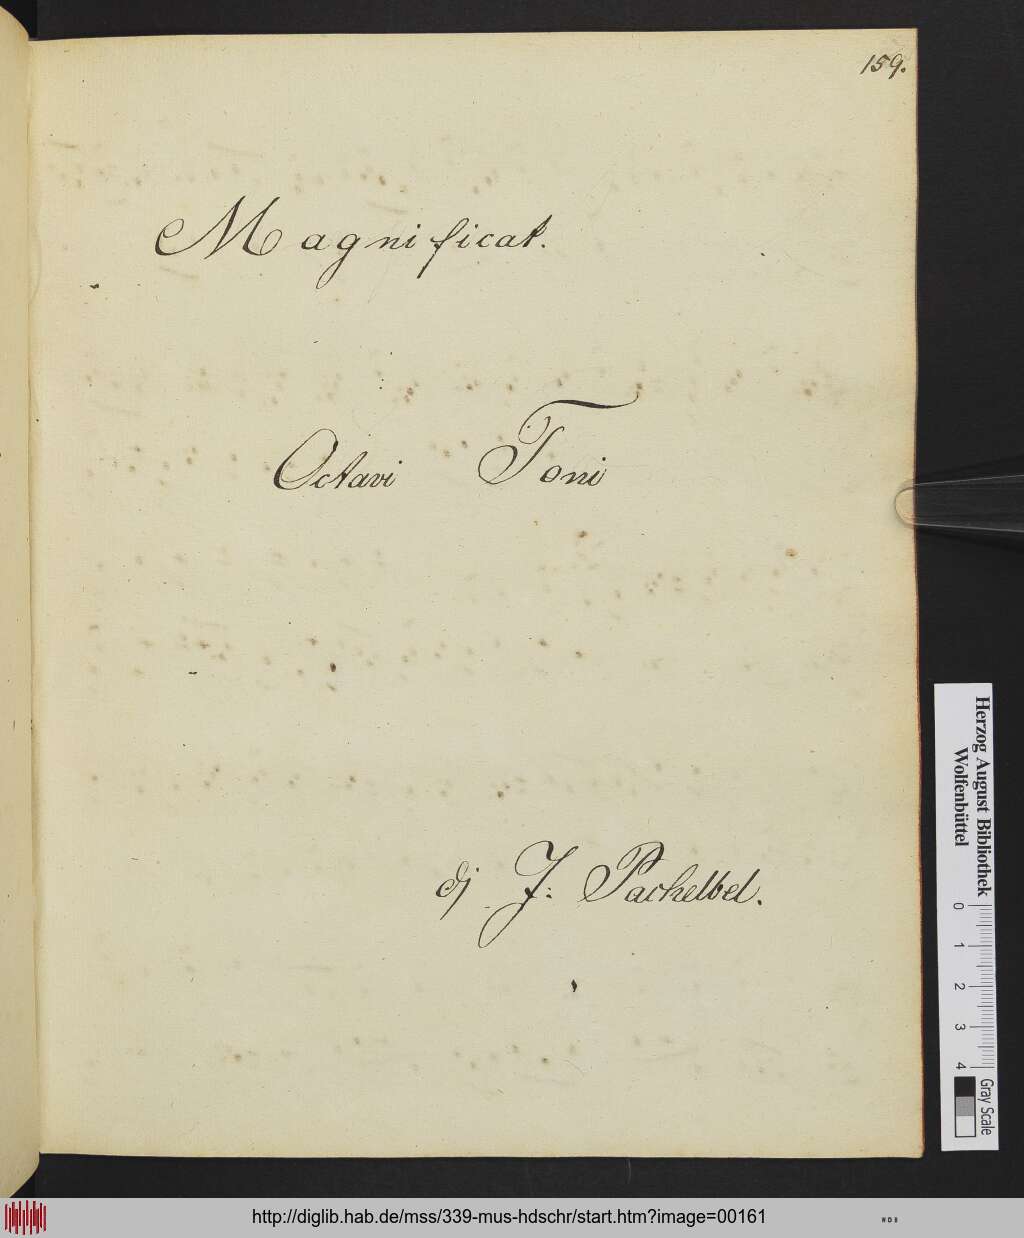 159.
Magnificat.
Octavi Toni
dj J: Pachelbel.
Herzog August Bibliothek
Wolfenbüttel
0 1 2 3 4
Gray Scale
http://diglib.hab.de/mss/339-mus-hdschr/start.htm?image=00161